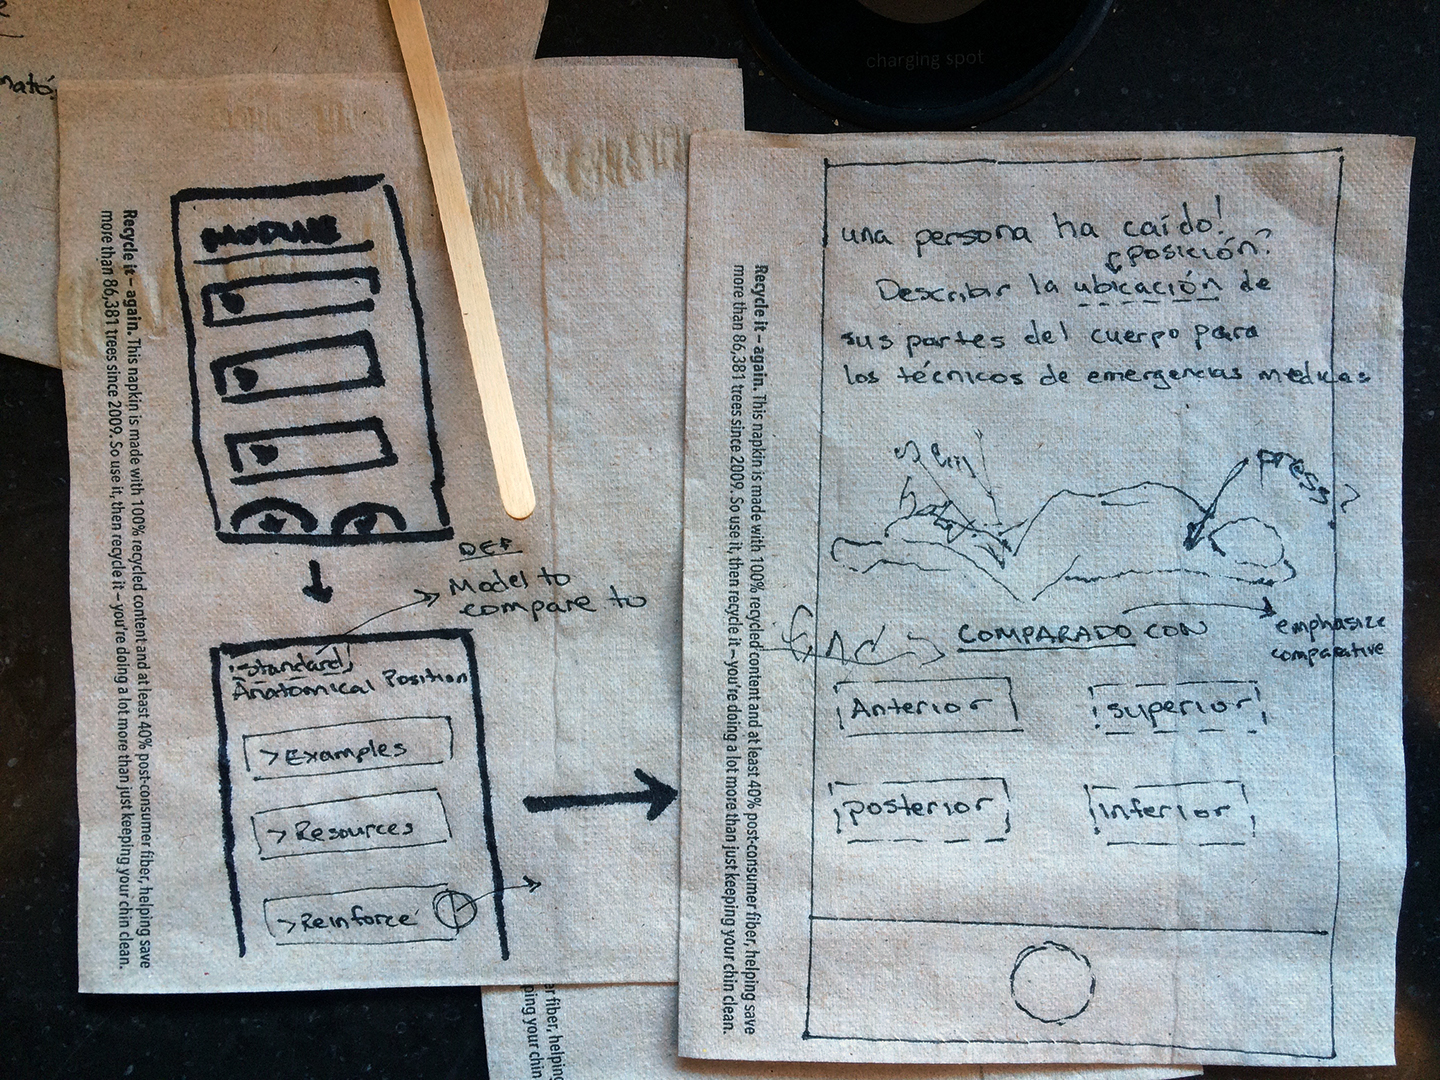 charging spot
Recycle it – again. This napkin is made with 100% recycled content and at least 40% post-consumer fiber, helping save
more than 86,381 trees since 2009. So use it, then recycle it – you're doing a lot more than just keeping your chin clean.
DEF
Model to
compare to
Standard
Anatomical Position
>Examples
>Resources
>Reinforce
Recycle it – again. This napkin is made with 100% recycled content and at least 40% post-consumer fiber, helping save
more than 86,381 trees since 2009. So use it, then recycle it – you're doing a lot more than just keeping your chin clean.
una persona ha caído!
posición?
Describir la ubicación de
sus partes del cuerpo para
los técnicos de emergencias medicas
press?
COMPARADO CON
emphasize
comparative
Anterior
superior
posterior
inferior
er fiber, helping
ping your chin